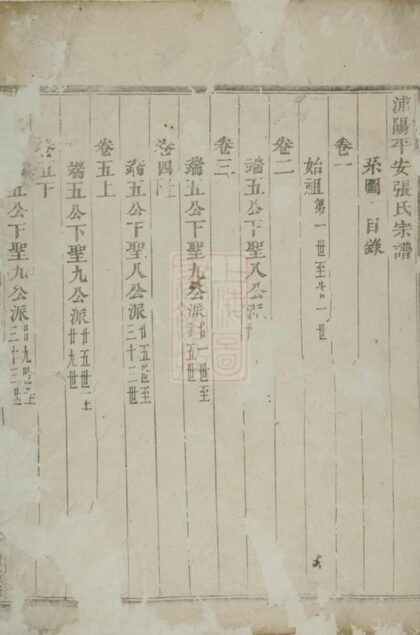 浦陽平安張氏宗譜
系圖 目錄
卷一
始祖第一世至廿一世
卷二
端五公下聖八公派廿
卷三
端五公下聖九公派廿一世至廿五世
卷四上
端五公下聖八公派廿五世至三十三世
卷五上
端五公下聖九公派廿五世至廿九世
卷五下
五公下聖九公派廿九世至三十三世